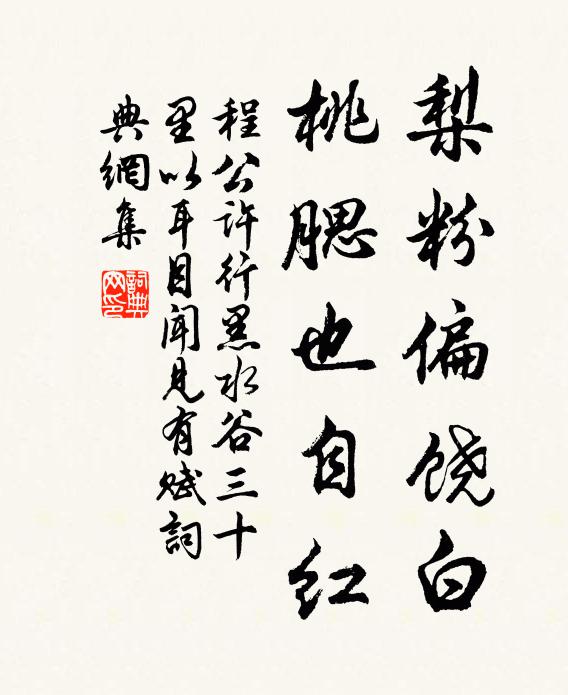 梨粉偏饶白
桃腮也自红
程公许行黑水谷三十
里以耳目闻见有赋詞
典網集
詞典
网印